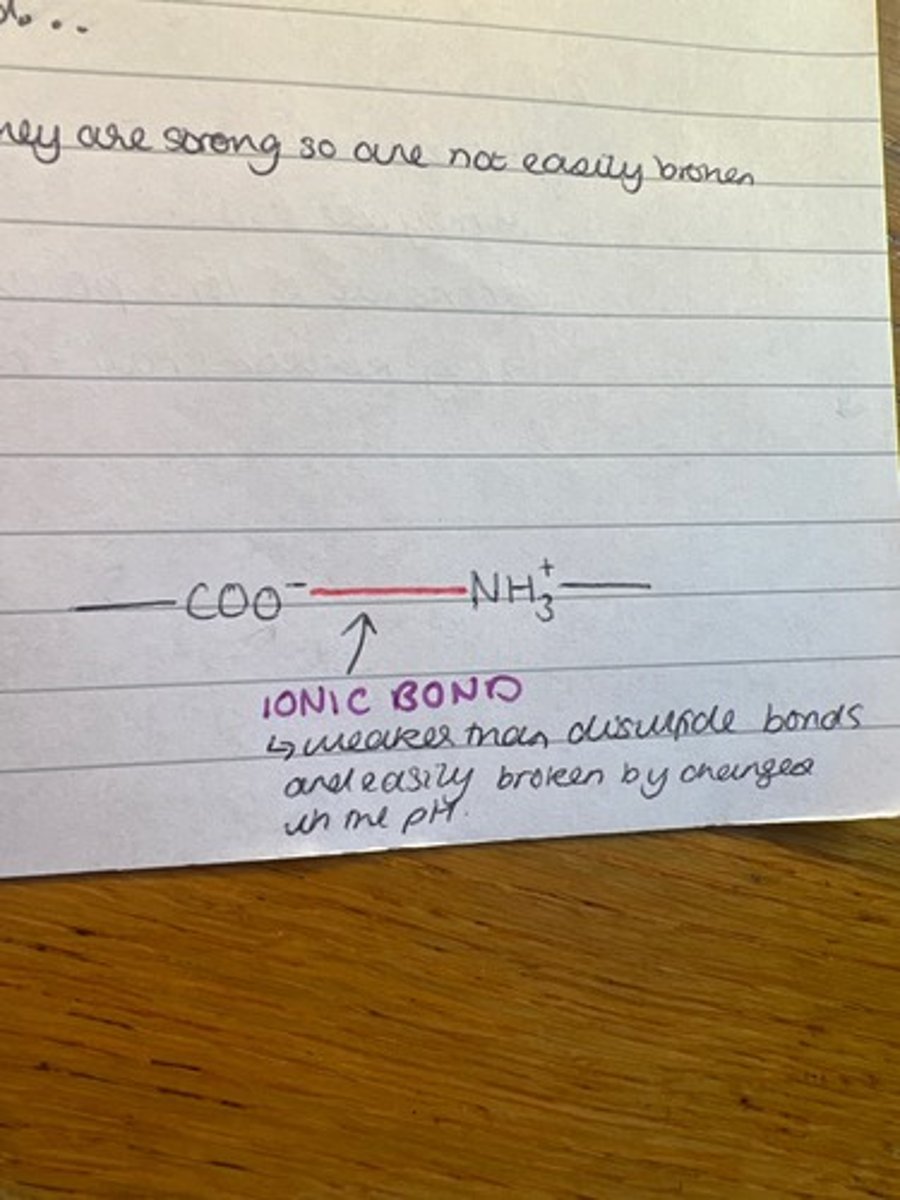 ...
hey are strong so are not easily broken
— COO⁻ — NH₃⁺ —
IONIC BOND
↳ weaker than disulfide bonds
and easily broken by changes
in the pH.